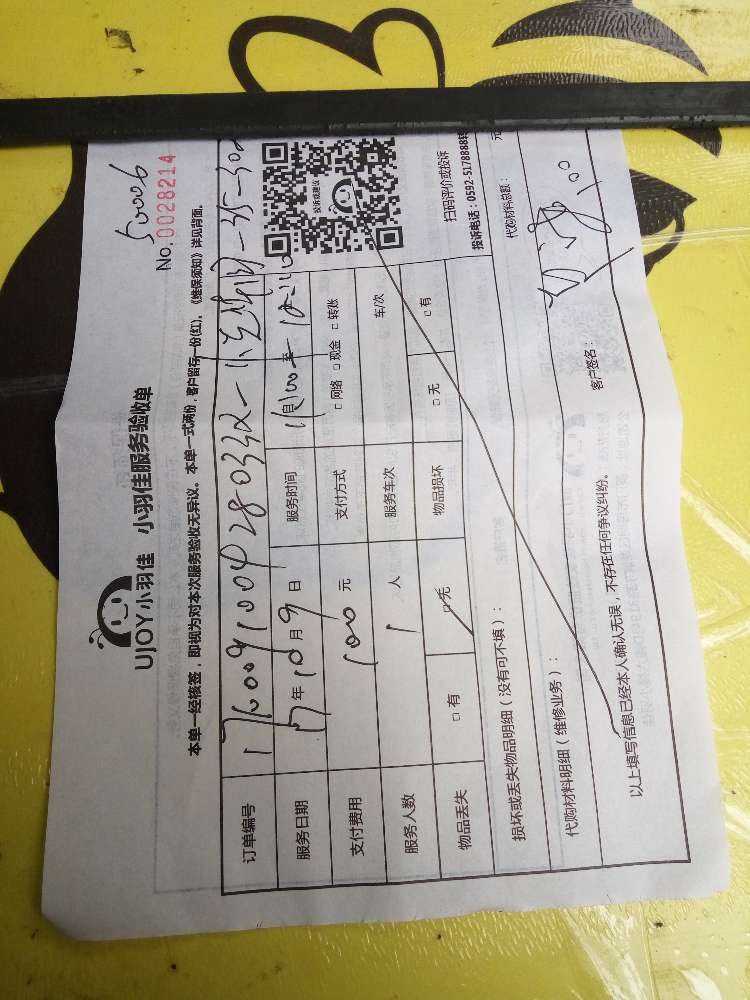 50006
No.0028214
UJOY小羽佳 小羽佳服务验收单
本单一经核签，即视为对本次服务验收无异议。本单一式两份，客户留存一份(红)。《维保须知》详见背面。
订单编号
服务日期 年 10 月 9 日 服务时间 至
支付费用 100 元 支付方式 □ 网络 □ 现金 □ 转账
服务人数 1 人 服务车次 车/次
物品丢失 □ 有 □ 无 物品损坏 □ 无 □ 有
投诉或建议
扫码评价或投诉
投诉电话：0592-5178888转
损坏或丢失物品明细（没有可不填）：
代购材料明细（维修业务）： 代购材料总额： 元
以上填写信息已经本人确认无误，不存在任何争议纠纷。
客户签名：